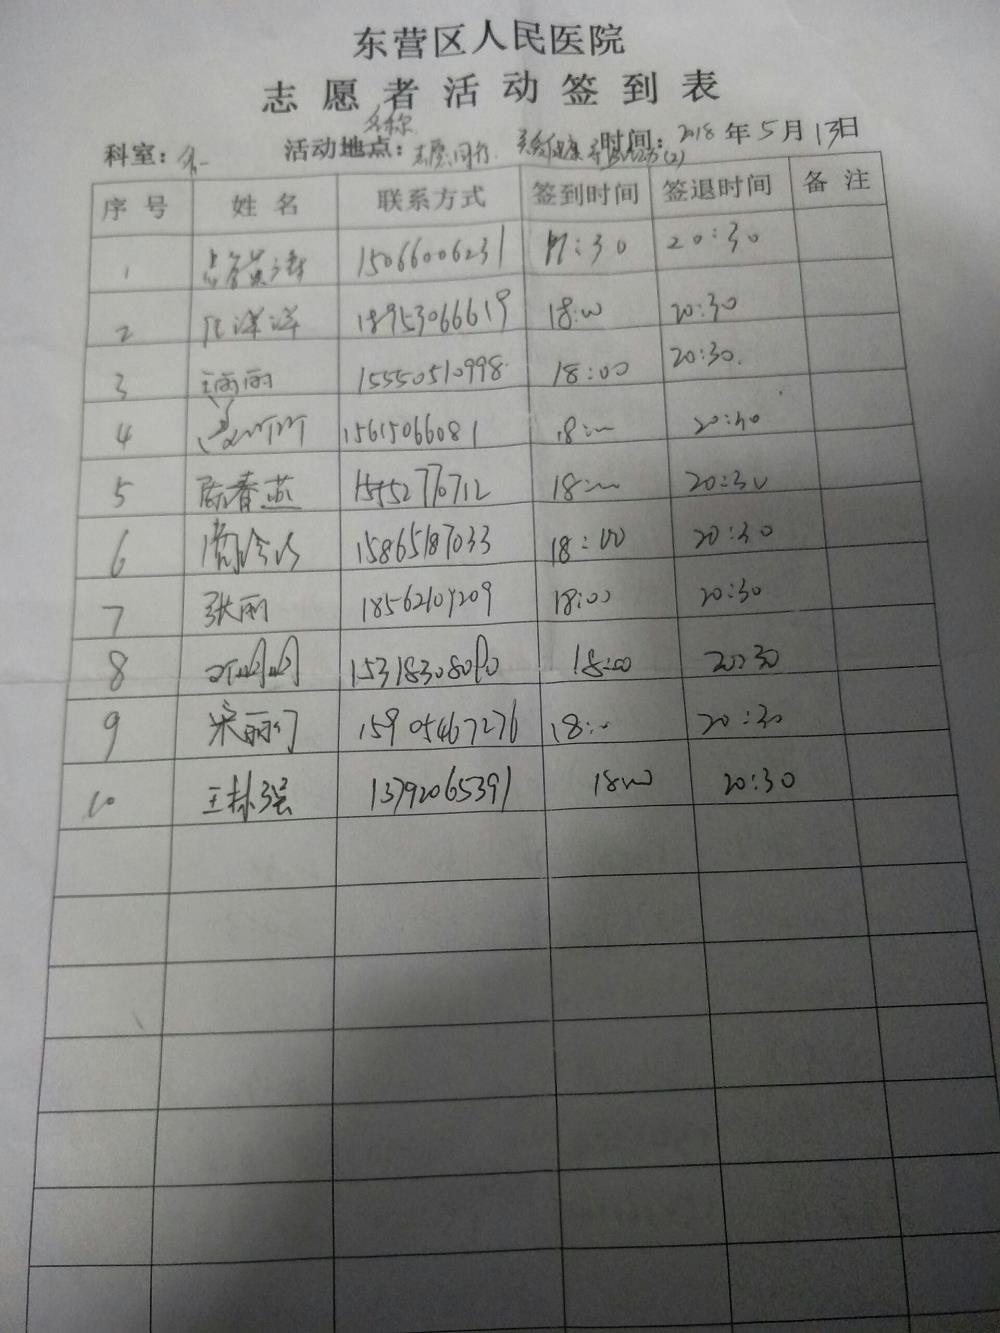 东营区人民医院
志愿者活动签到表
名称
科室: 活动地点: 志愿同行 关爱健康 时间: 2018年5月13日
序号 姓名 联系方式 签到时间 签退时间 备注
1 15066006231 17:30 20:30
2 洋洋 18953066619 18:00 20:30
3 丽 15550510998 18:00 20:30.
4 15615066081 18:00 20:30
5 陈春燕 18:00 20:30
6 15865187033 18:00 20:30
7 张丽 18:00 20:30
8 15318308090 18:00 20:30
9 宋丽 15905467276 18:00 20:30
10 王林强 13792065391 18:00 20:30